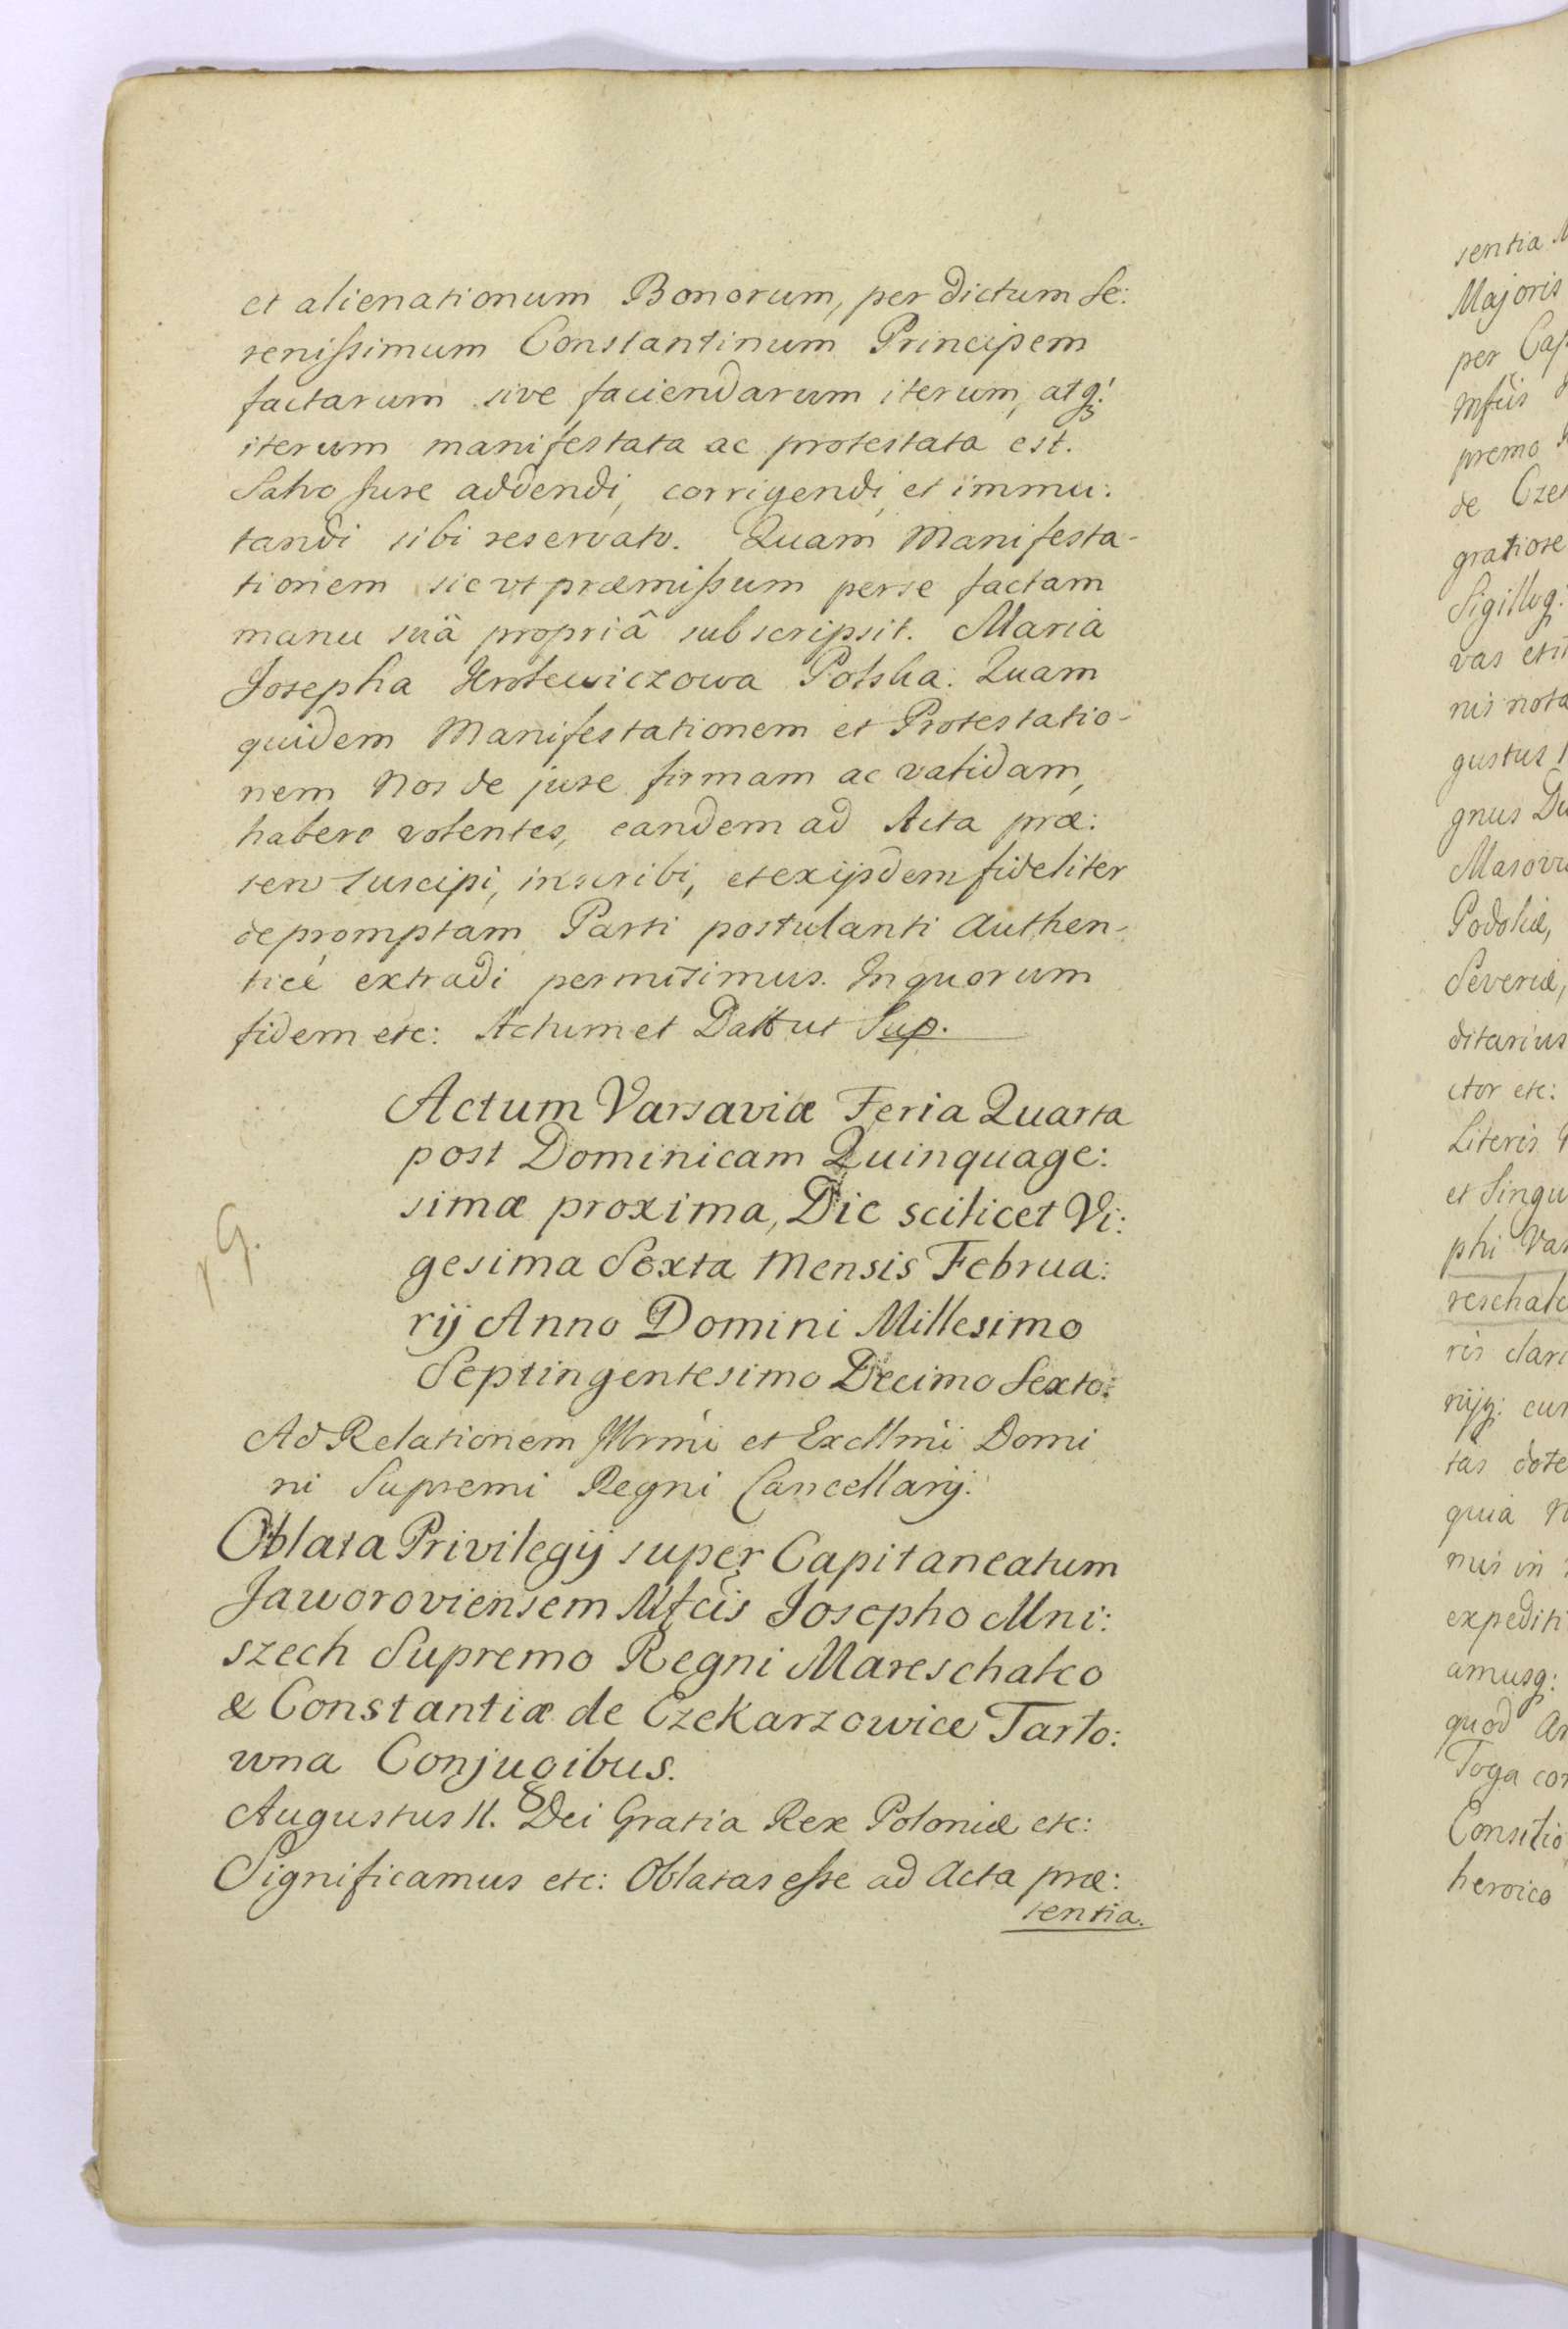 et alienationum Bonorum, per dictum Se:
renißimum Constantinum Principem
factarum sive faciendarum iterum, atq:
iterum manifestata ac protestata est.
Salvo Jure addendi, corrigendi, et immu:
tandi sibi reservato. Quam Manifesta-
tionem sic ut præmißum per se factam
manu suâ propriâ subscripsit. Maria
Josepha Krolewiczowa Polska. Quam
quidem Manifestationem et Protestatio-
nem Nos de jure firmam ac validam,
habere volentes, eandem ad Acta præ:
sen suscipi, inscribi, et exijsdem fideliter
depromptam Parti postulanti Authen-
ticé extradi permisimus. In quorum
fidem etc: Actum et Datt ut Sup.
Actum Varsaviæ Feria Quarta
post Dominicam Quinquage:
simæ proxima, Die scilicet Vi:
gesima Sexta Mensis Februa:
rij Anno Domini Millesimo
Septingentesimo Decimo Sexto:
r G.
Ad Relationem Illrmi et Excllmi Domi
ni Supremi Regni Cancellarij.
Oblata Privilegij super Capitaneatum
Jaworoviensem Mfcis Josepho Mni:
szech Supremo Regni Mareschalco
& Constantiæ de Czekarzowice Tarło:
wna Conjugibus.
Augustus II. Dei Gratia Rex Poloniæ etc:
Significamus etc: Oblatas eße ad Acta præ:
sentia.
sentia
Majoris
per Cap
Mfcis
premo
de Czek
gratiore
Sigilloq:
vas et
nis nota
gustus
gnus Du
Masovi
Podoliæ,
Severiæ,
ditarius
ctor etc:
Literis
et Singu
phi Van
reschalc
ris clari
nijq: cun
tas dote
quia N
nus in
expediti
amusq:
quod an
Toga con
Consilio
heroico